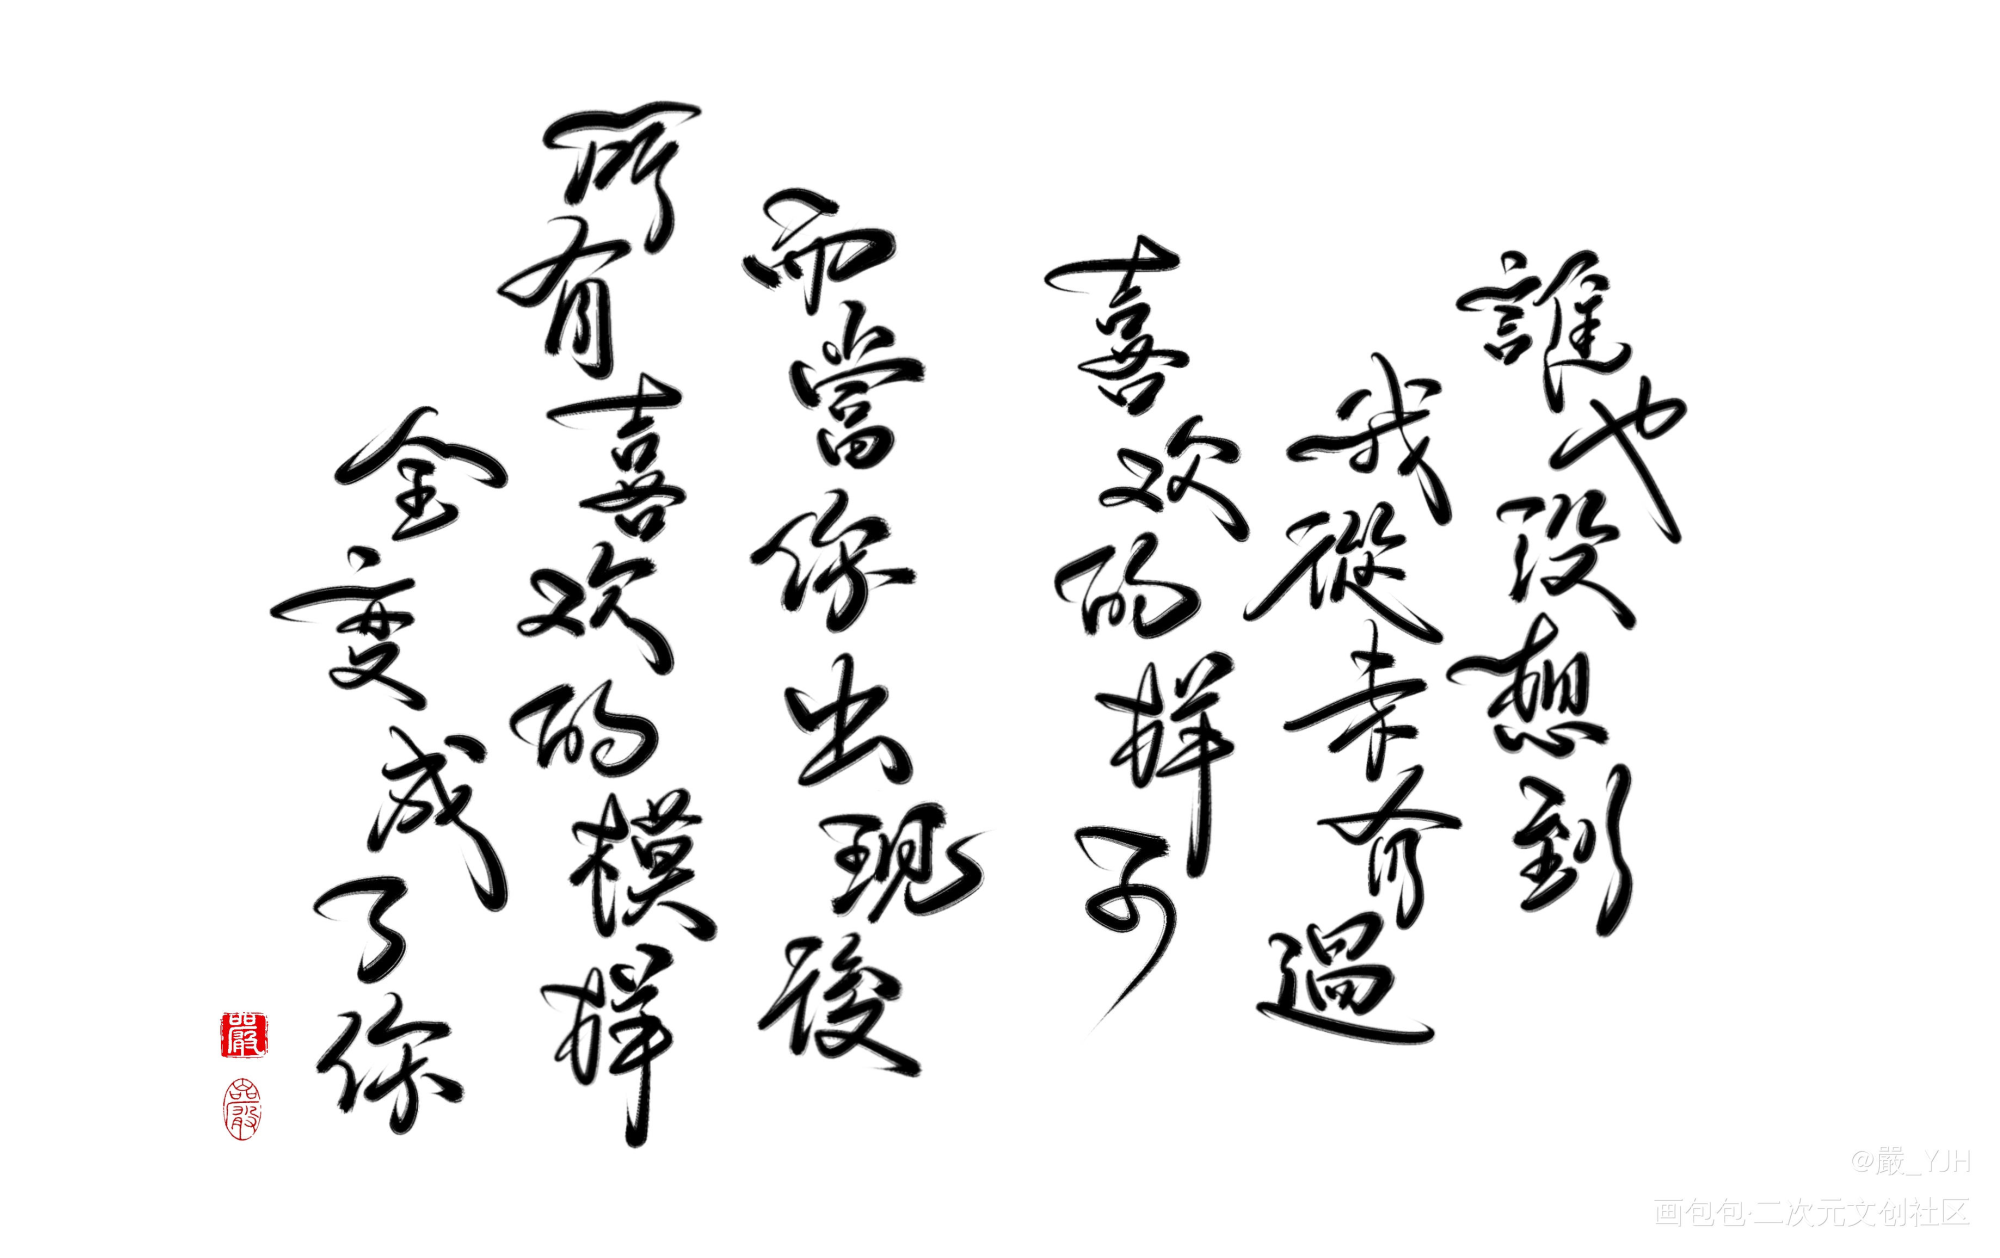 誰也没想到
我從未有過
喜欢的样子
而當你出現後
所有喜欢的模样
全变成了你
嚴
嚴
@嚴_YJH
画包包·二次元文创社区